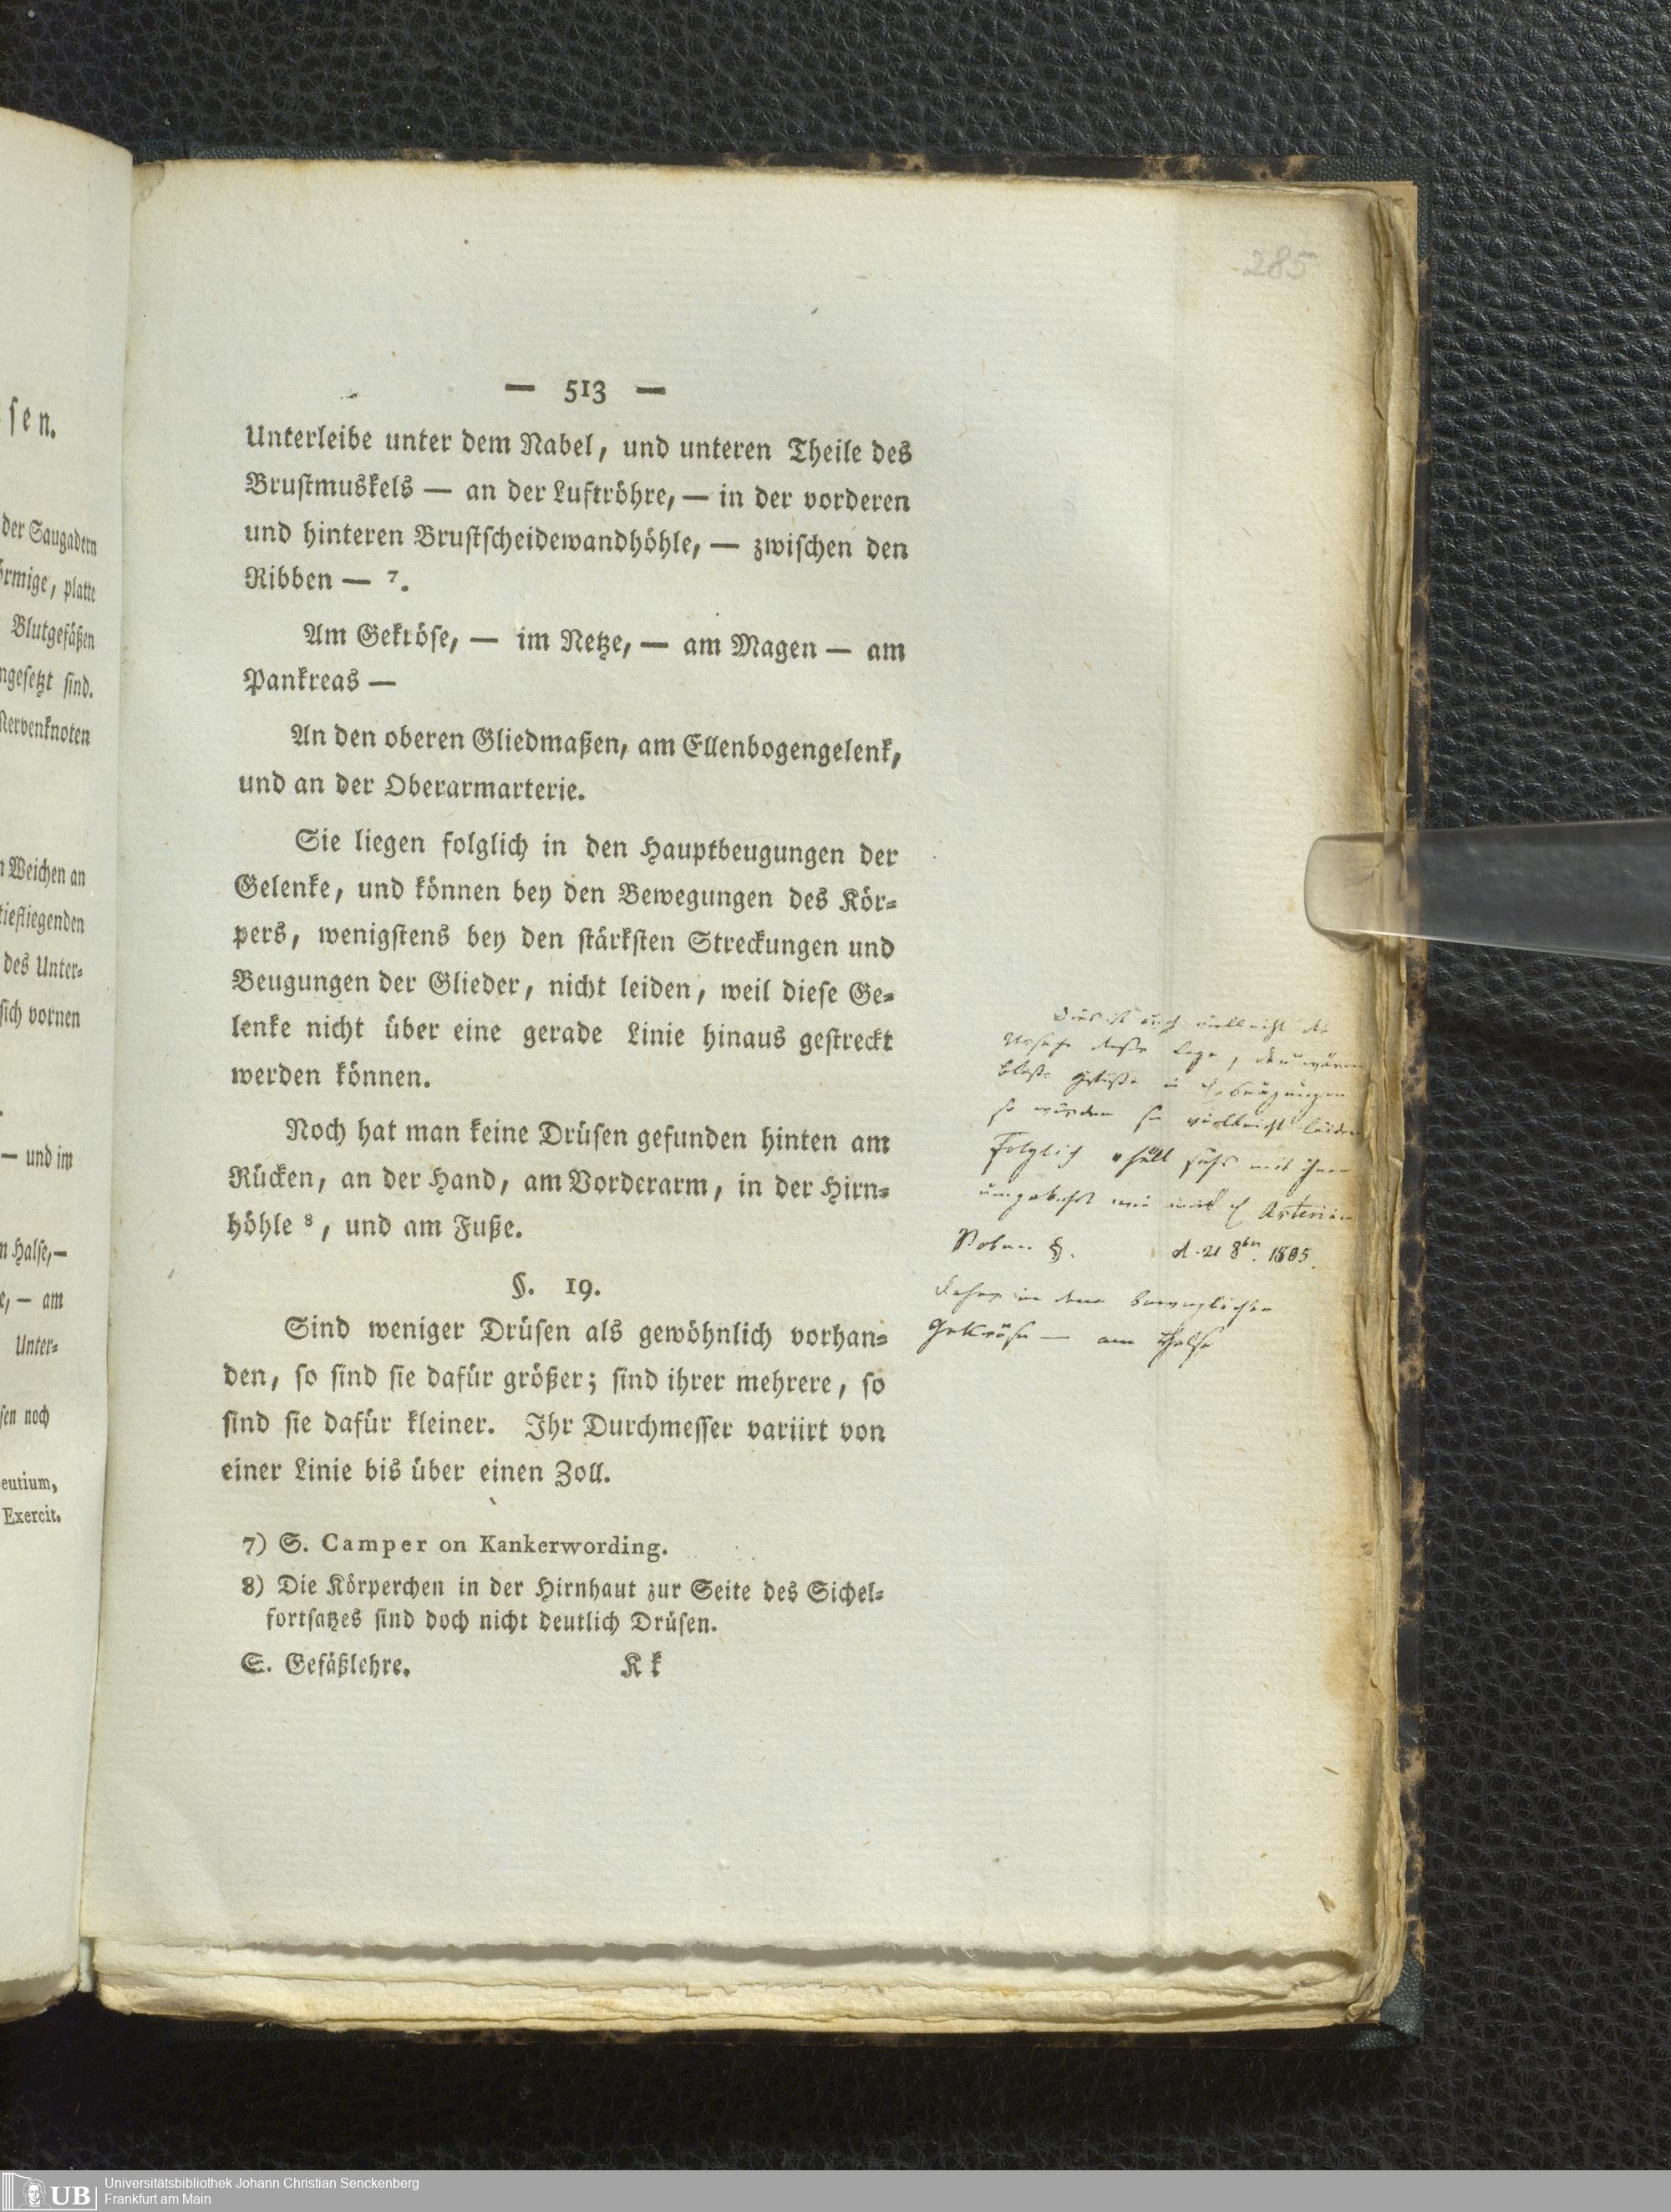 285
— 513 —
Unterleibe unter dem Nabel, und unteren Theile des
Brustmuskels — an der Luftröhre, — in der vorderen
und hinteren Brustscheidewandhöhle, — zwischen den
Ribben — ⁷.
Am Gekröse, — im Netze, — am Magen — am
Pankreas —
An den oberen Gliedmaßen, am Ellenbogengelenk,
und an der Oberarmarterie.
Sie liegen folglich in den Hauptbeugungen der
Gelenke, und können bey den Bewegungen des Kör-
pers, wenigstens bey den stärksten Streckungen und
Beugungen der Glieder, nicht leiden, weil diese Ge-
lenke nicht über eine gerade Linie hinaus gestreckt
werden können.
Noch hat man keine Drüsen gefunden hinten am
Rücken, an der Hand, am Vorderarm, in der Hirn-
höhle ⁸, und am Fuße.
§. 19.
Sind weniger Drüsen als gewöhnlich vorhan-
den, so sind sie dafür größer; sind ihrer mehrere, so
sind sie dafür kleiner. Ihr Durchmesser variirt von
einer Linie bis über einen Zoll.
7) S. Camper on Kankerwording.
8) Die Körperchen in der Hirnhaut zur Seite des Sichel-
fortsatzes sind doch nicht deutlich Drüsen.
S. Gefäßlehre. Kk
vielleicht die
Ursache dieser Lage,
so würden sie vielleicht leiden
Folglich mit ihnen
umgekehrt wie mit Arterien
§. d. 21 8br. 1805.
Daher in dem beweglichen
Gekröse — am Halse
sen.
der Saugadern
örmige, platte
Blutgefäßen
ngesetzt sind.
Nervenknoten
n Weichen an
tiefliegenden
des Unter-
sich vornen
— und im
n Halse,—
e, — am
Unter-
sen noch
eutium,
Exercit.
UB
Universitätsbibliothek Johann Christian Senckenberg
Frankfurt am Main